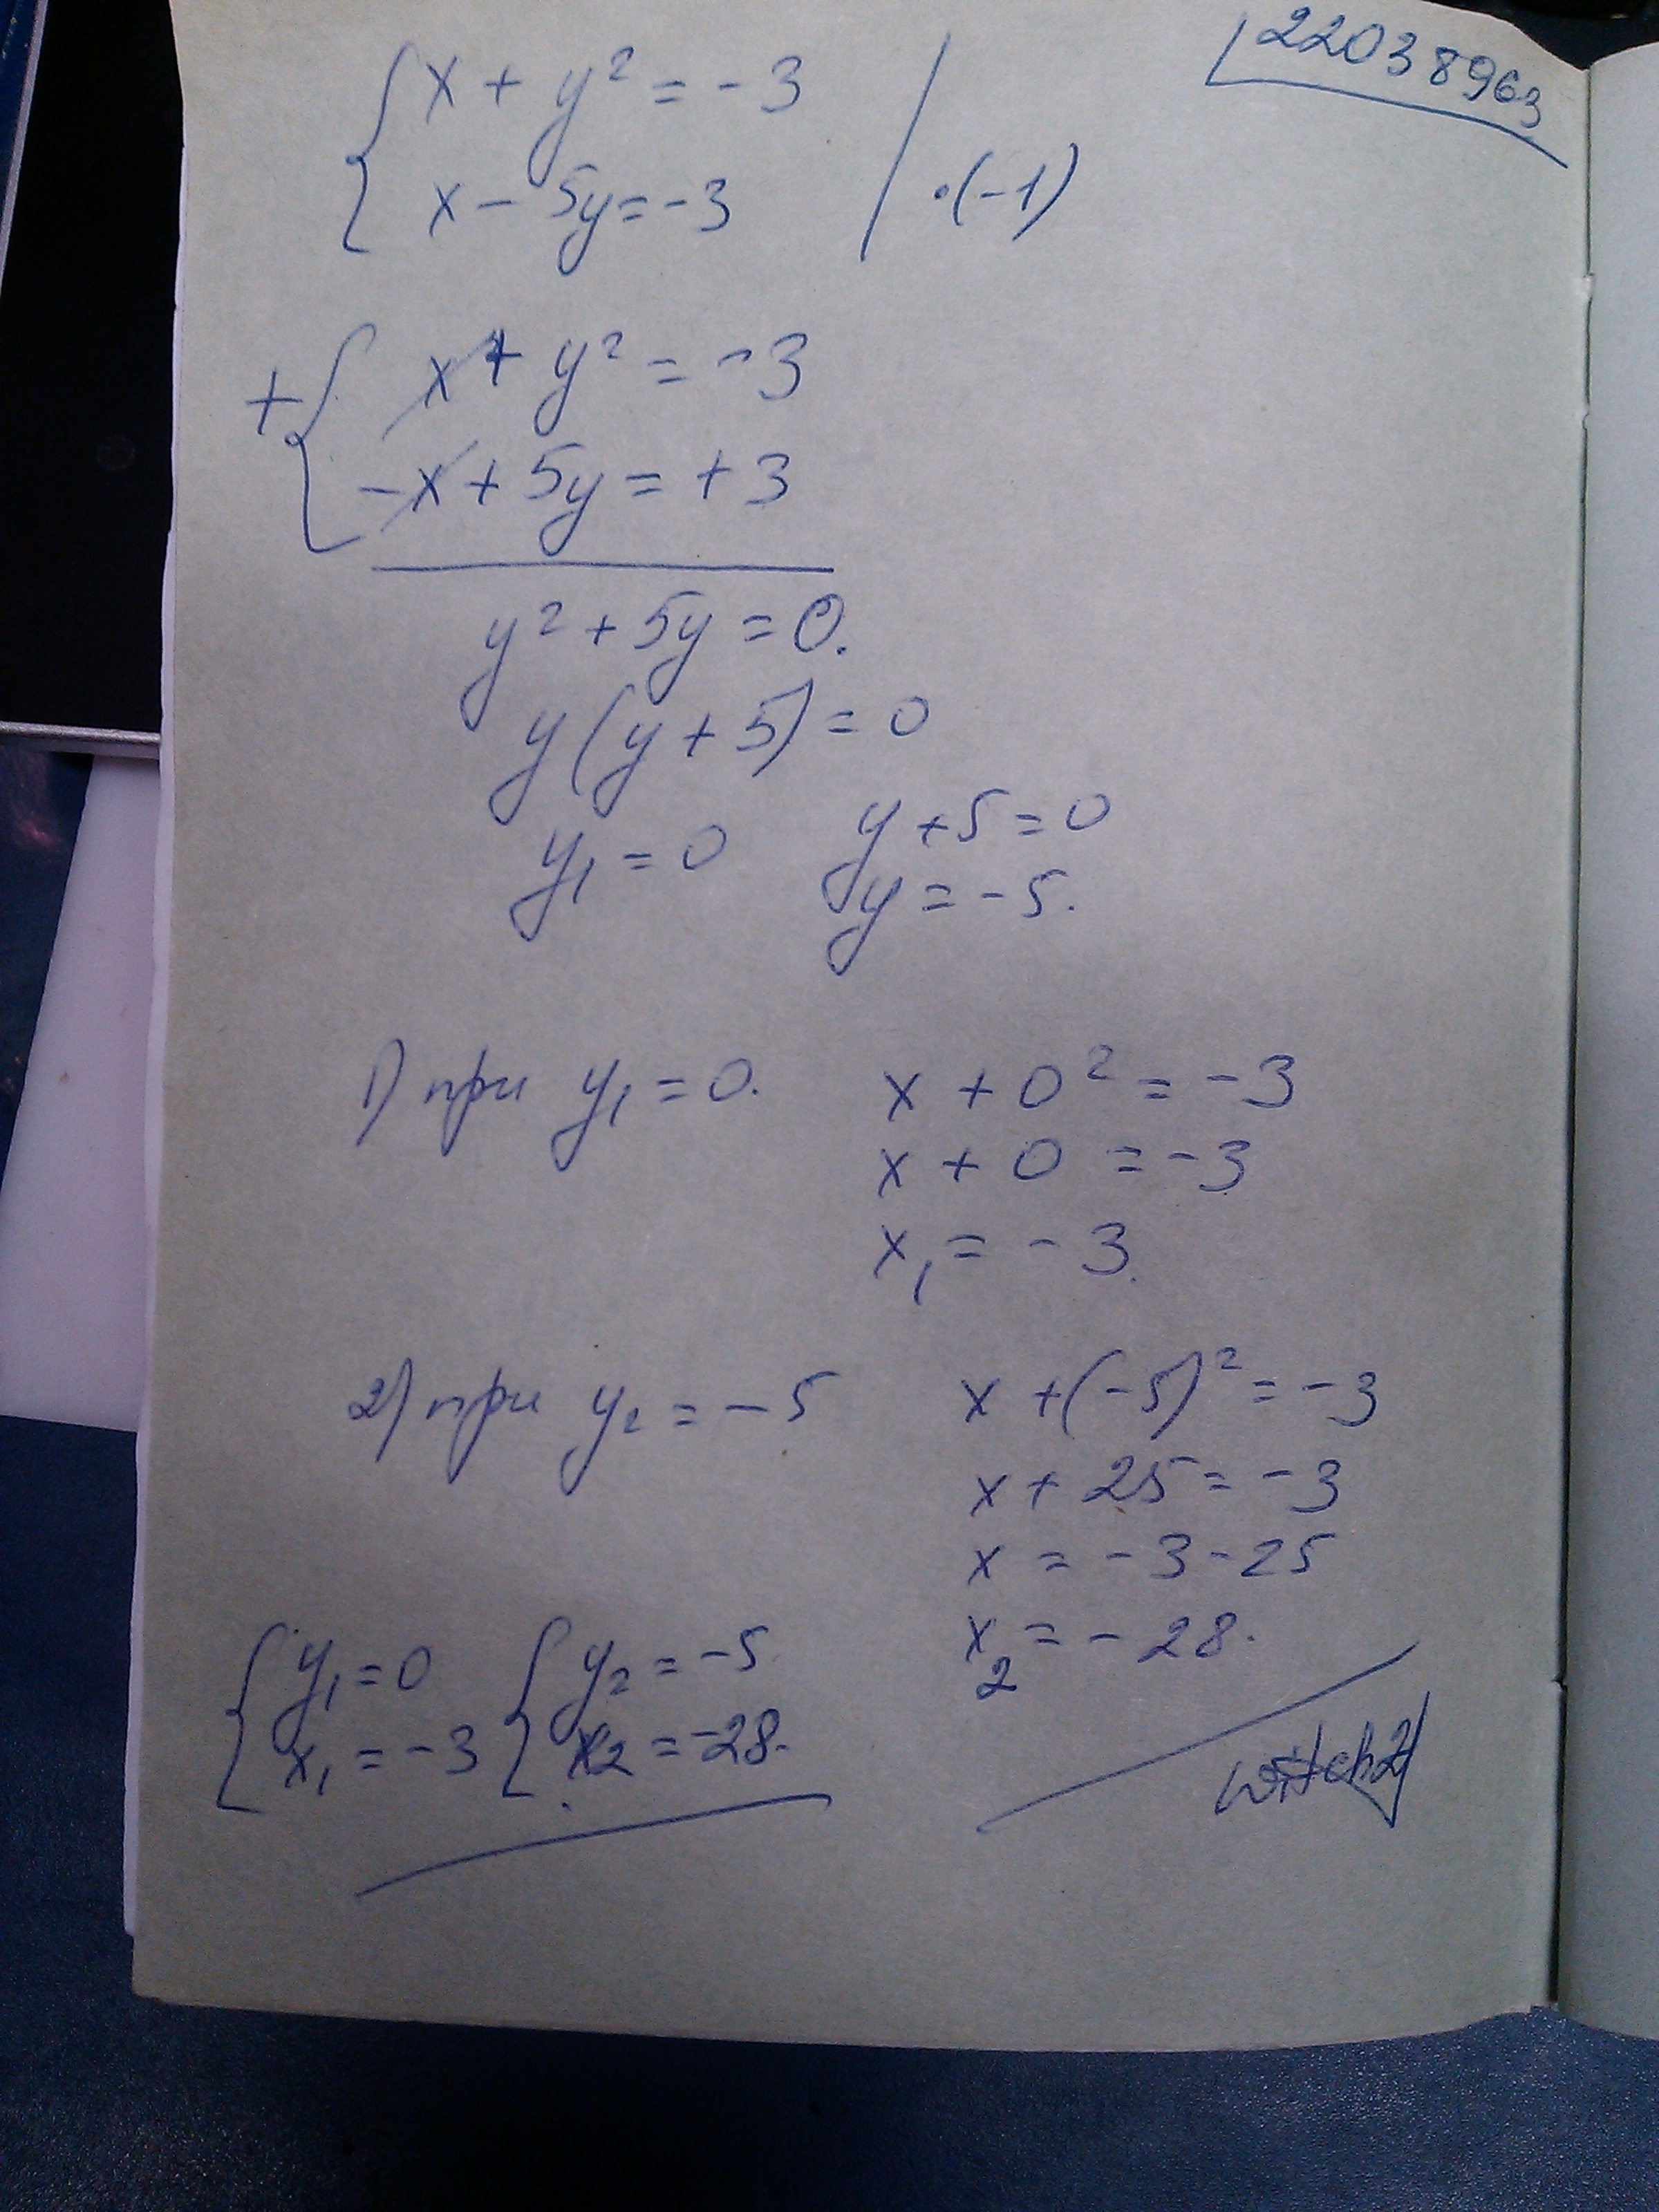 22038963
{ x + y² = -3
x - 5y = -3 | ·(-1)
+ { x + y² = -3
-x + 5y = +3
y² + 5y = 0.
y(y + 5) = 0
y₁ = 0 y + 5 = 0
y = -5.
1) при y₁ = 0. x + 0² = -3
x + 0 = -3
x₁ = -3.
2) при y₂ = -5 x + (-5)² = -3
x + 25 = -3
x = -3 - 25
x₂ = -28.
{ y₁ = 0 { y₂ = -5
x₁ = -3 x₂ = -28.